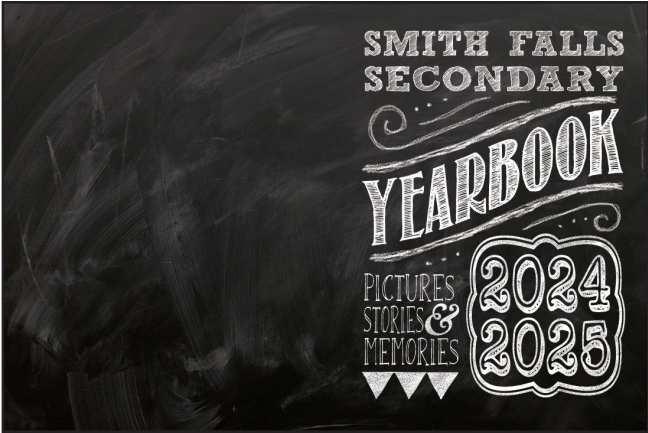 SMITH FALLS
SECONDARY
YEARBOOK
PICTURES
STORIES &
MEMORIES
2024
2025